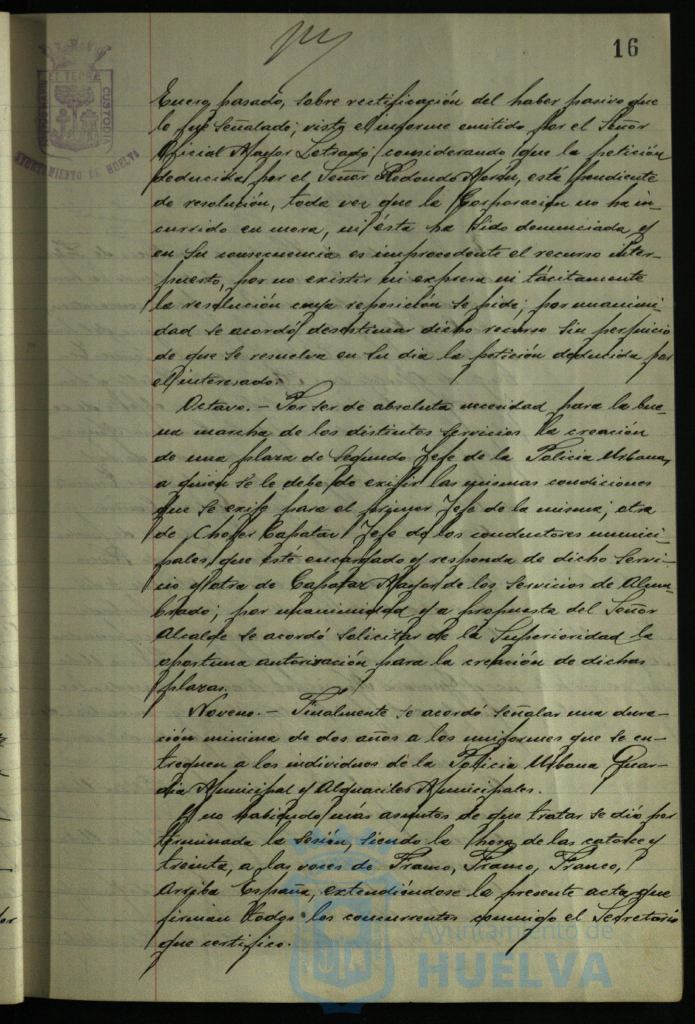 16
Enero pasado, sobre rectificación del haber pasivo que
le fue señalado; visto el informe emitido por el Señor
Oficial Mayor Letrado; considerando que la petición
deducida por el Señor Redondo Morón, está pendiente
de resolución, toda vez que la Corporación no ha in-
currido en mora, ni ésta ha sido denunciada y
en su consecuencia es improcedente el recurso inter-
puesto, por no existir ni expresa ni tácitamente
la resolución cuya reposición se pide; por unanimi-
dad se acordó desestimar dicho recurso sin perjuicio
de que se resuelva en su dia la petición deducida por
el interesado.
Octavo.- Por ser de absoluta necesidad para la bue-
na marcha de los distintos servicios la creación
de una plaza de Segundo Jefe de la Policia Urbana,
a quien se le debe de exigir las mismas condiciones
que se exije para el primer Jefe de la misma; otra
de Chofer Capataz Jefe de los conductores munici-
pales, que esté encargado y responda de dicho servi-
cio y otra de Capataz Mayor de los Servicios de Alum-
brado; por unanimidad y a propuesta del Señor
Alcalde se acordó solicitar de la Superioridad la
oportuna autorización para la creación de dichas
plazas.
Noveno.- Finalmente se acordó señalar una dura-
ción minima de dos años a los uniformes que se en-
treguen a los individuos de la Policia Urbana, Guar-
dia Municipal y Alguaciles Municipales.
Y no habiendo más asuntos de que tratar se dió por
terminada la sesión, siendo la hora de las catorce y
treinta, a las voces de Franco, Franco, Franco,
Arriba España, extendiéndose la presente acta que
firman todos los concurrentes conmigo el Secretario
que certifico.
CUSTODIA
AYUNTAMIENTO DE HUELVA
Ayuntamiento de
HUELVA